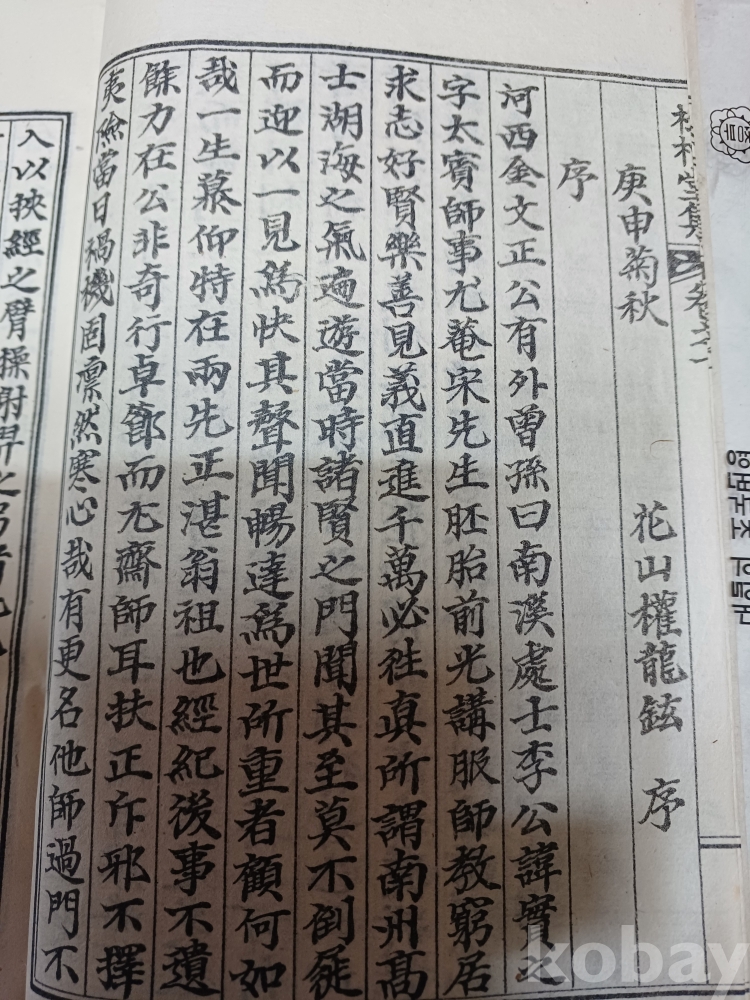 庚申菊秋 花山權龍鉉 序
序
河西金文正公有外曾孫曰南漢處士李公諱實之
字太實師事尤菴宋先生胚胎前光講服師教窮居
求志好賢樂善見義直進千萬必徃真所謂南州高
士湖海之氣遍遊當時諸賢之門聞其至莫不倒屣
而迎以一見爲快其聲聞暢達爲世所重者顧何如
哉一生慕仰特在兩先正湛翁祖也經紀後事不遺
餘力在公非奇行卓節而尤齋師耳扶正斥邪不擇
夷險當日禍機固凛然寒心哉有更名他師過門不
入以挾經之臂操射羿之弓者
kobay